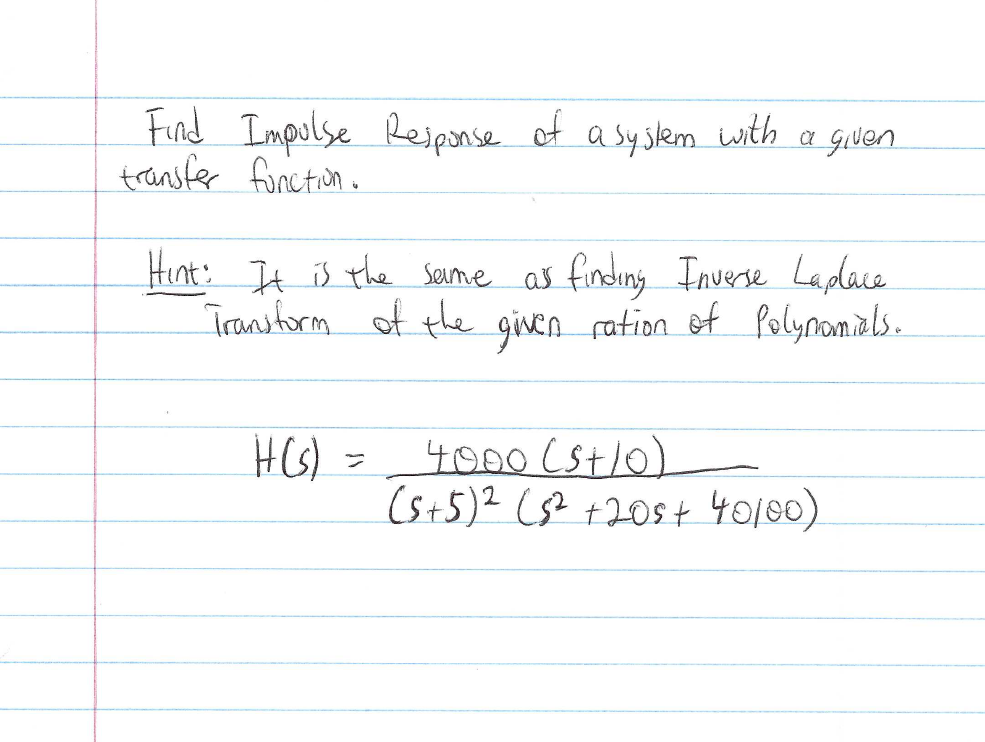 Find Impulse Response of a system with a given
transfer function.
Hint: It is the same as finding Inverse Laplace
Transform of the given ration of Polynomials.
H(s) = 4000 (s+10)
(s+5)² (s² +20s+ 40100)